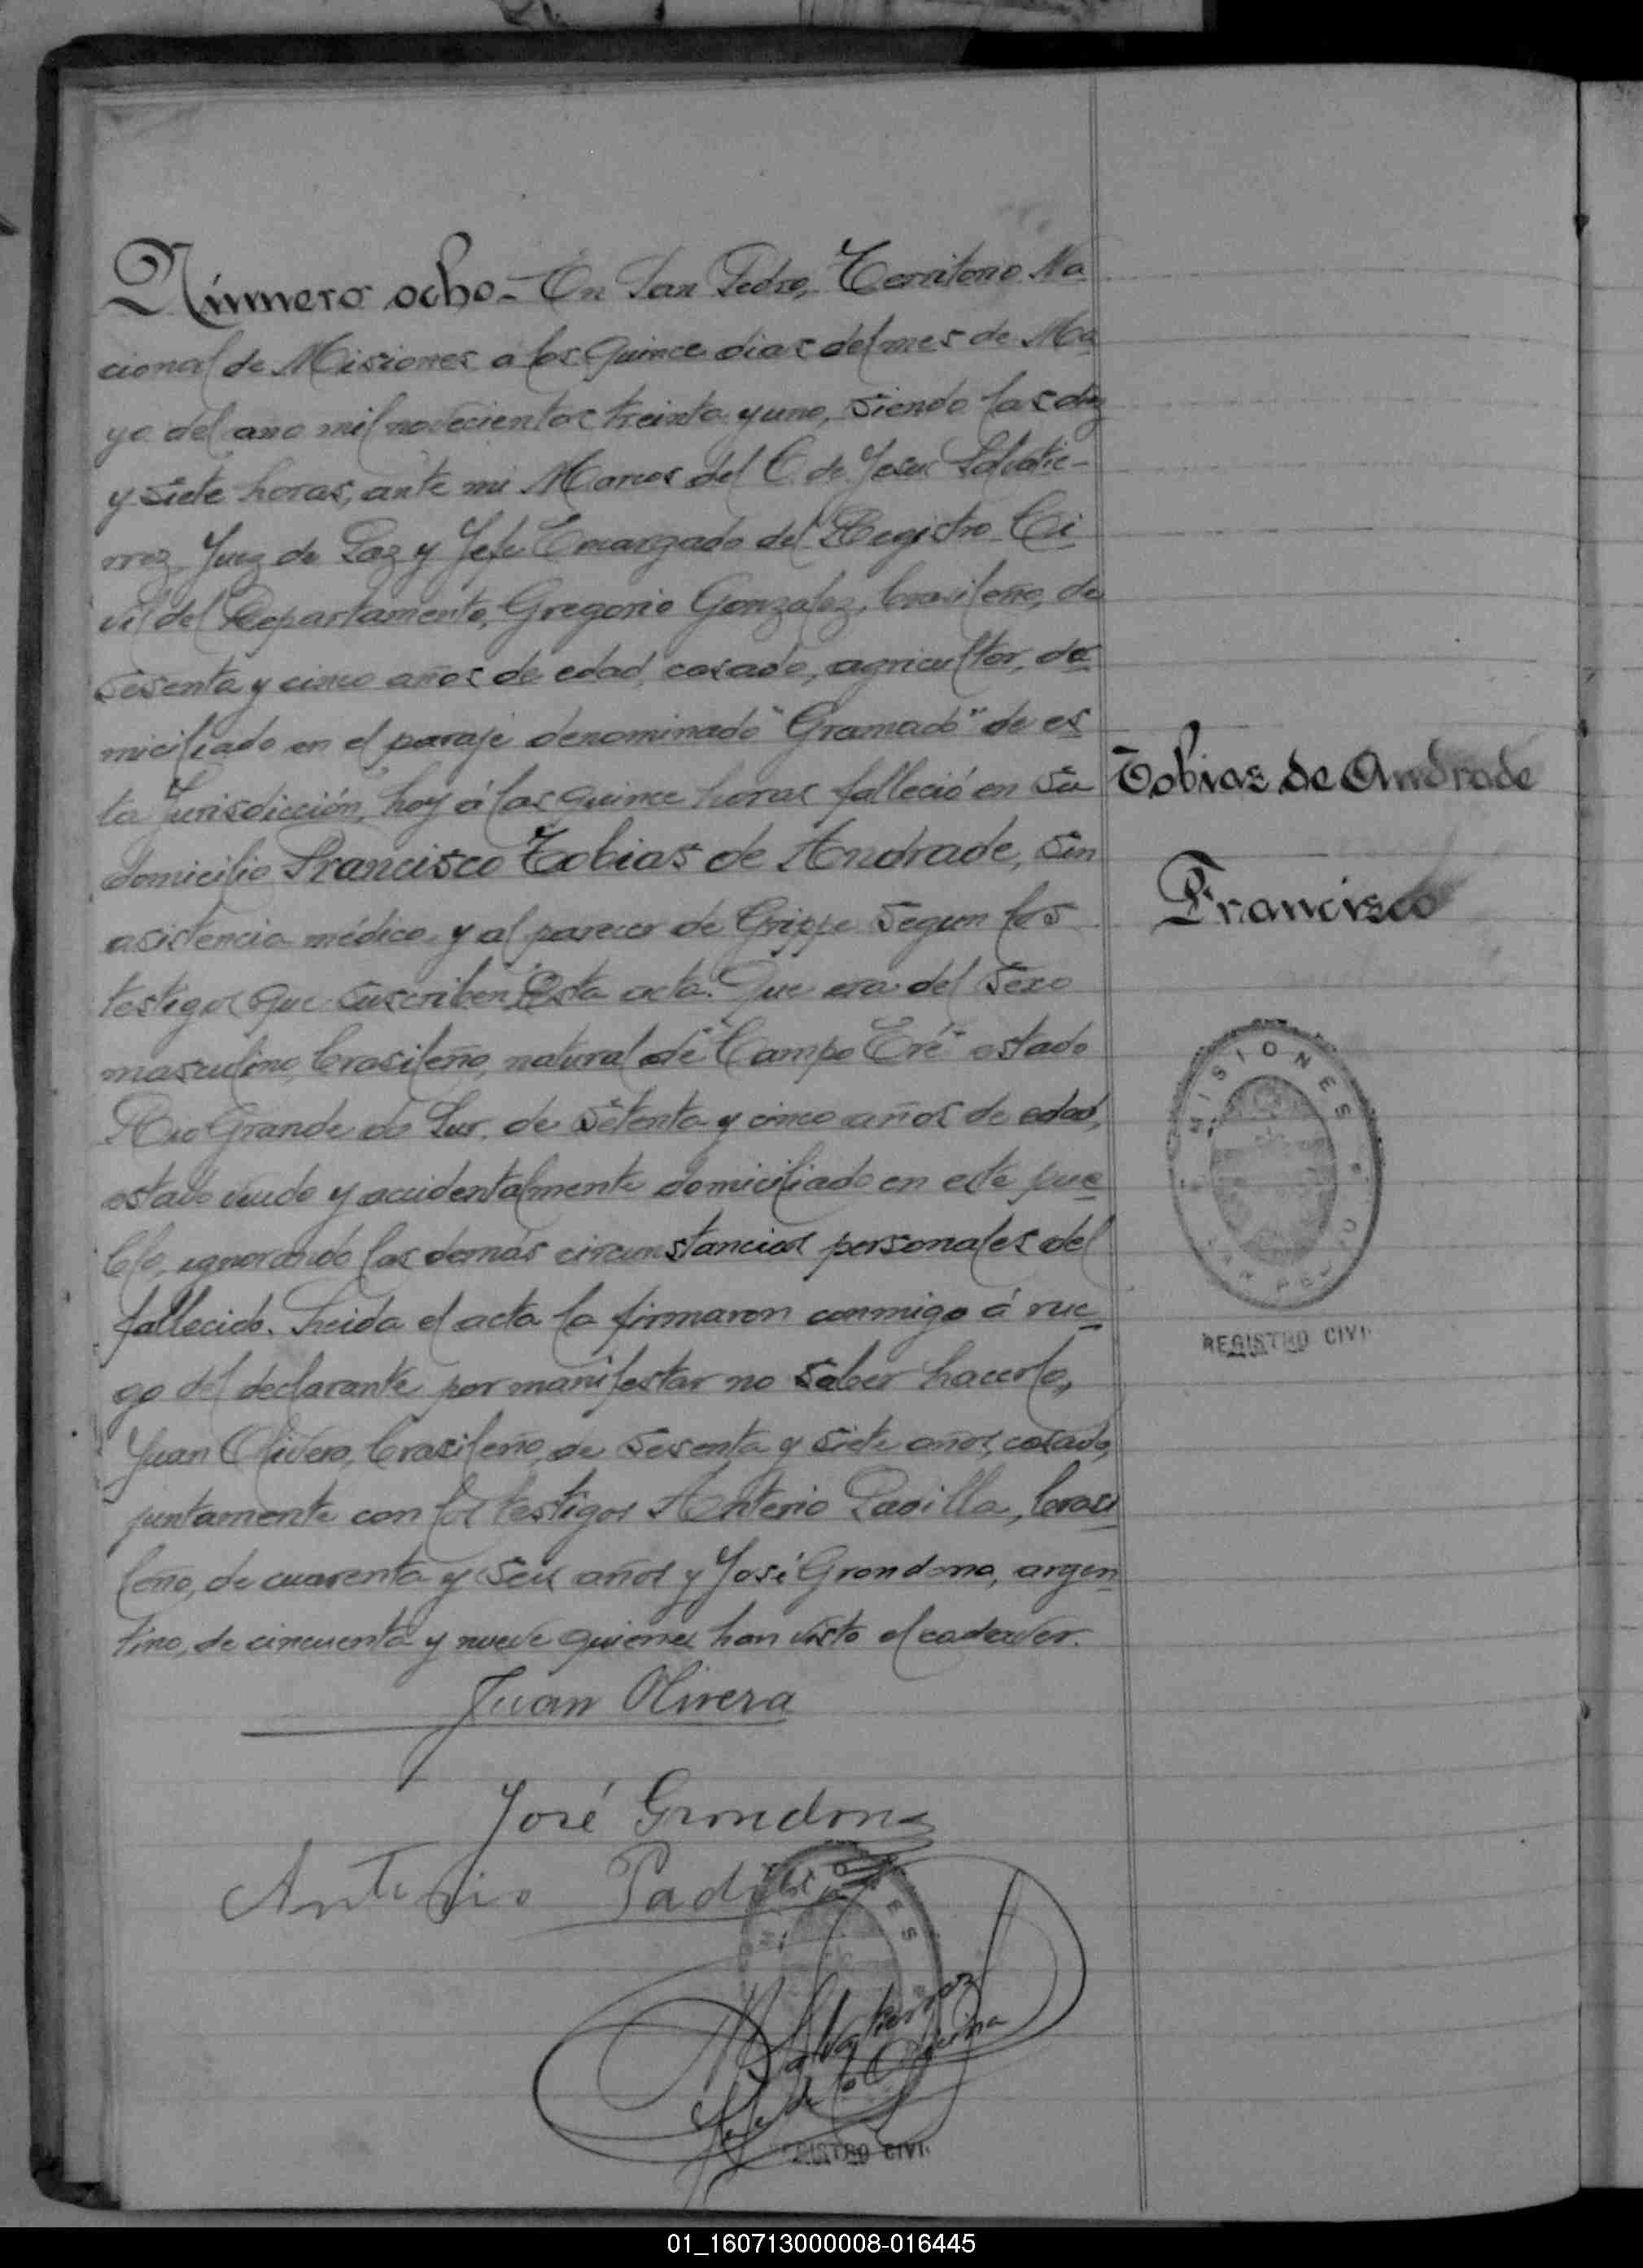 Número ocho - En San Pedro, Territorio Na
cional de Misiones a los quince dias del mes de Ma
yo del año mil novecientos treinta y uno, siendo las diez
y siete horas, ante mi Marcos del C. de Jesus Salvatie-
rrez Juez de Paz y Jefe Encargado del Registro Ci
vil del Departamento, Gregorio Gonzalez, brasileño, de
sesenta y cinco años de edad, casado, agricultor, do
miciliado en el paraje denominado "Gramado" de es
ta Jurisdicción, hoy á las quince horas falleció en su
Tobias de Andrade
domicilio Francisco Tobias de Andrade, sin
Francisco
asistencia médica y al parecer de Grippe segun los
testigos que suscriben esta acta. Que era del sexo
masculino, brasileño, natural de "Campo Eré" estado
Rio Grande do Sur, de setenta y cinco años de edad,
estado viudo y accidentalmente domiciliado en este pue
blo, ignorando las demás circunstancias personales del
fallecido. Leida el acta la firmaron conmigo á rue
go del declarante por manifestar no saber hacerlo,
Juan Olivera, brasileño, de sesenta y siete años, casado,
juntamente con los testigos Anterio Padilla, brasi
leño, de cuarenta y seis años y José Grondona, argen
tino, de cincuenta y nueve quienes han visto el cadaver.
MISIONES
SAN PEDRO
REGISTRO CIVIL
Juan Olivera
José Grondona
Anterio Padilla
M Salvatierrez
Jefe de la Oficina
REGISTRO CIVIL
01_160713000008-016445